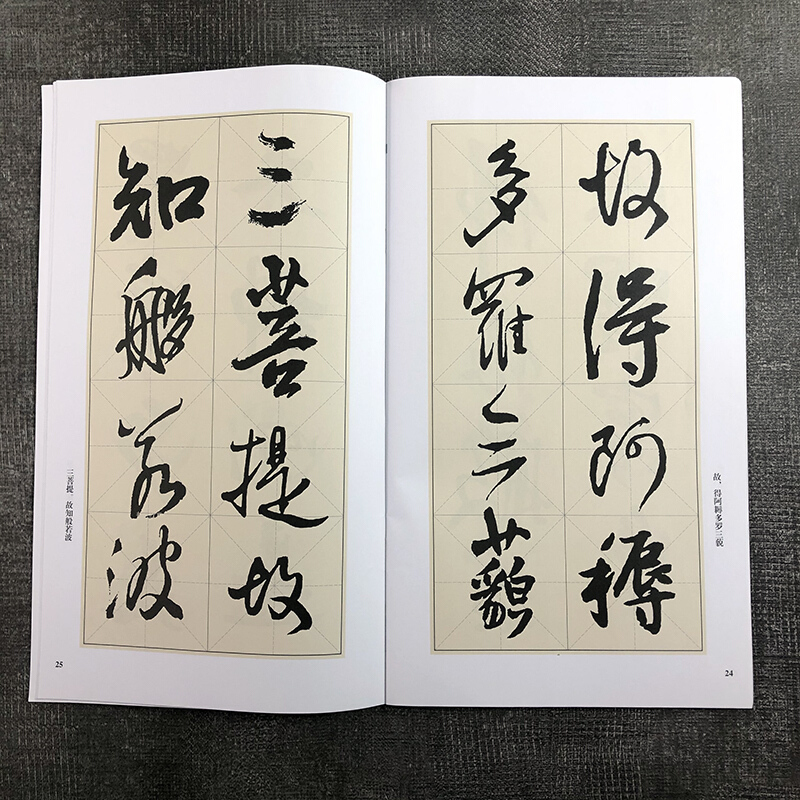 故得阿耨
多羅三藐
故，得阿耨多罗三藐
24
三菩提故
知般若波
三菩提。故知般若波
25